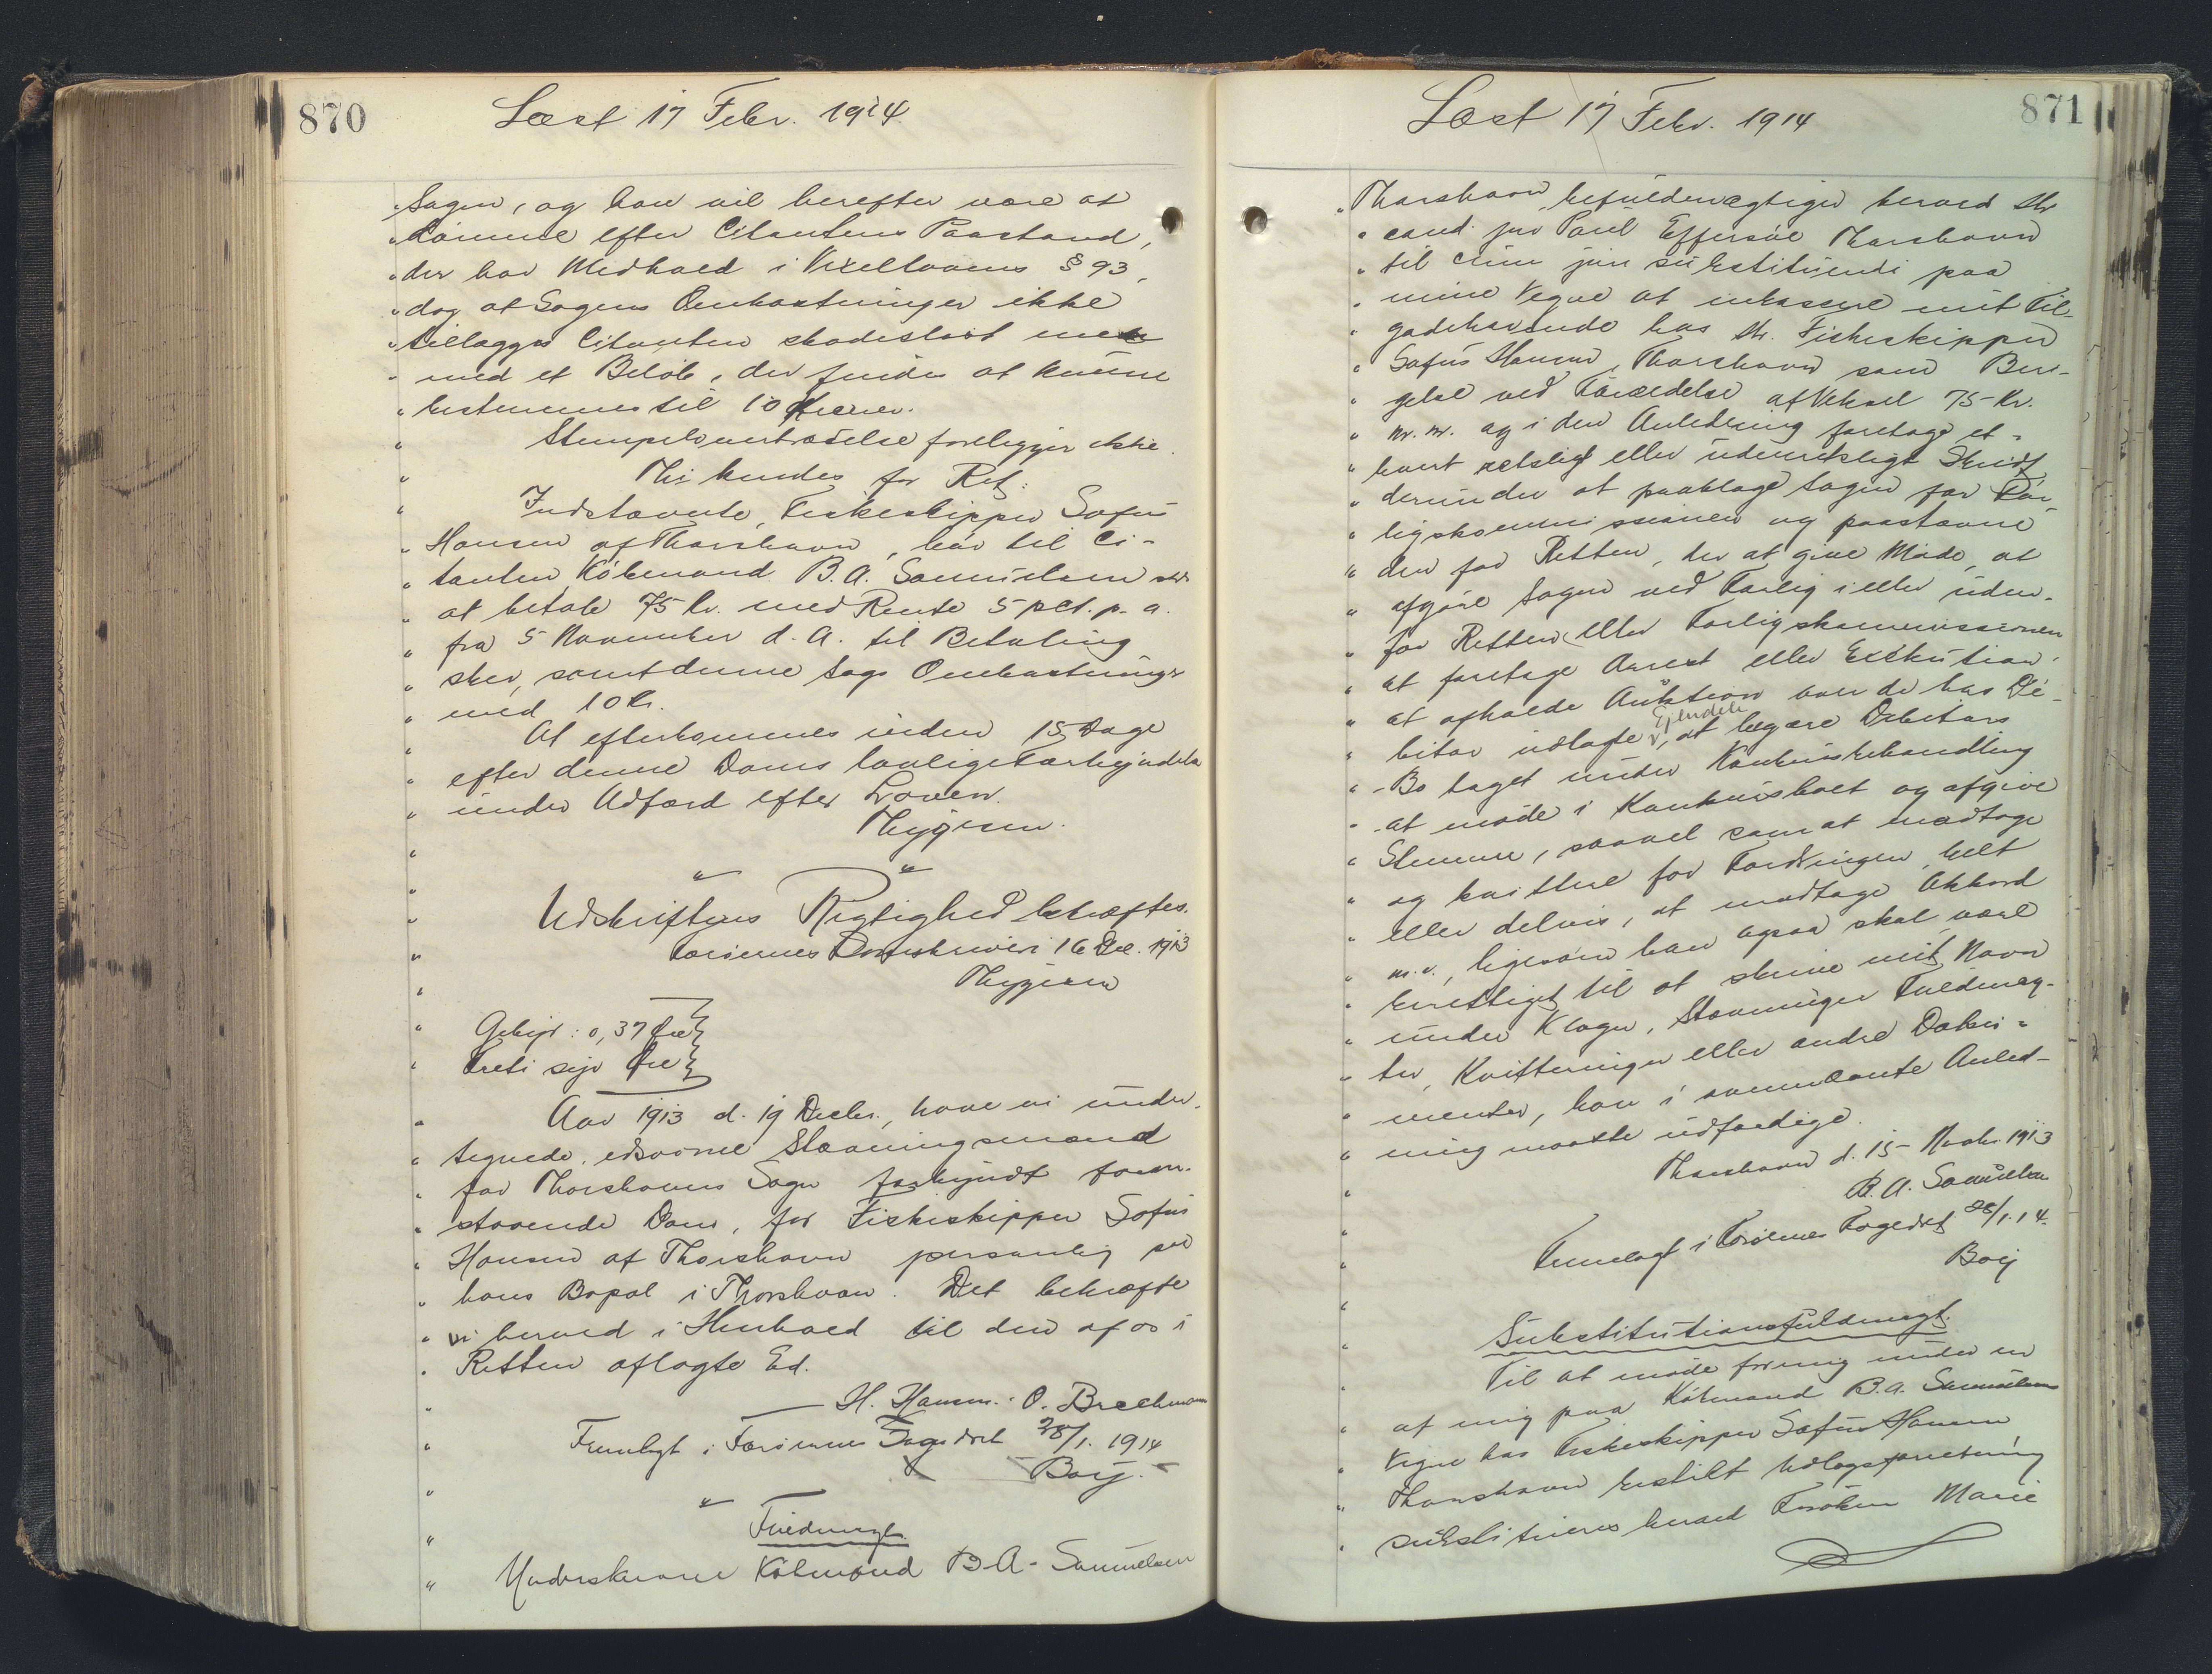 870
Læst 17 Febr. 1914
Sagen, og han vil herefter være at
dømme efter Citantens Paastand,
der har Medhold i Vexellovens § 93,
dog at Sagens Omkostninger ikke
tillægges Citanten skadesløst men
med et Beløb, der findes at kunne
bestemmes til 10 Kroner.
Stempelovertrædelse foreligger ikke.
Thi kendes for Ret:
Indstævnte, Fiskeskipper Sofus
Hansen af Thorshavn, bør til Ci-
tanten Købmand B. A. Samuelsen
at betale 75 Kr. med Rente 5 pct. p. a.
fra 5 November d. A. til Betaling
sker, samt denne Sags Omkostninger
med 10 Kr.
At efterkommes inden 15 Dage
efter denne Doms lovlige Forkyndelse
under Adfærd efter Loven.
Thygesen.
Udskriftens Rigtighed bekræftes.
Færøernes Sorenskriveri 16 Dec. 1913
Thygesen
Gebyr: 0,37 Øre
Treti syv Øre
Aar 1913 d. 19 Decbr., have vi under-
tegnede, edsvorne Stævningsmænd
for Thorshavns Sogn forkyndt foran-
staaende Dom, for Fiskeskipper Sofus
Hansen af Thorshavn personlig paa
hans Bopæl i Thorshavn. Det bekræfte
vi herved i Henhold til den af os i
Retten aflagte Ed.
H. Hansen. O. Brechmann
Fremlagt i Færøernes Fogedret 28/1. 1914
Boij.
Fuldmagt.
Underskrevne Købmand B. A. Samuelsen
871
Læst 17 Febr. 1914
Thorshavn, befuldmægtiger herved Hr
cand. jur Poul Effersøe Thorshavn
til cum jure substituendi paa
mine Vegne at inkassere mit Til-
godehavende hos Hr. Fiskeskipper
Sofus Hansen, Thorshavn som Beri-
gelse ved Forældelse af Veksel 75 Kr.
m. m. og i den Anledning foretage et-
hvert retsligt eller udenretsligt Skridt,
derunder at paaklage Sagen for For-
ligskommissionen og paastævne
den for Retten, der at give Møde, at
afgøre Sagen ved Forlig i eller uden-
for Retten eller Forligskommissionen
at foretage Arrest eller Exekution.
at afholde Auktion over de hos De-
bitor udlagte Ejendele, at begære Debitors
Bo taget under Konkursbehandling
at møde i Konkursboet og afgive
Stemme, saavel som at modtage
og kvittere for Fordringen, helt
eller delvis, at modtage Akkord
m. v., ligesom han ogsaa skal være
berettiget til at skrive mit Navn
under Klager, Stævninger Fuldmag-
ter, Kvitteringer eller andre Doku-
menter, han i ommeldte Anled-
ning maatte udfærdige.
Thorshavn d. 15 Novbr. 1913
B. A. Samuelsen
Fremlagt i Færøernes Fogedret 28/1. 14.
Boij
Substitutionsfuldmagt.
Til at møde for mig under en
af mig paa Købmand B. A. Samuelsens
Vegne hos Fiskeskipper Sofus Hansen
Thorshavn bestilt Udlægsforretning
substitueres herved Frøken Marie